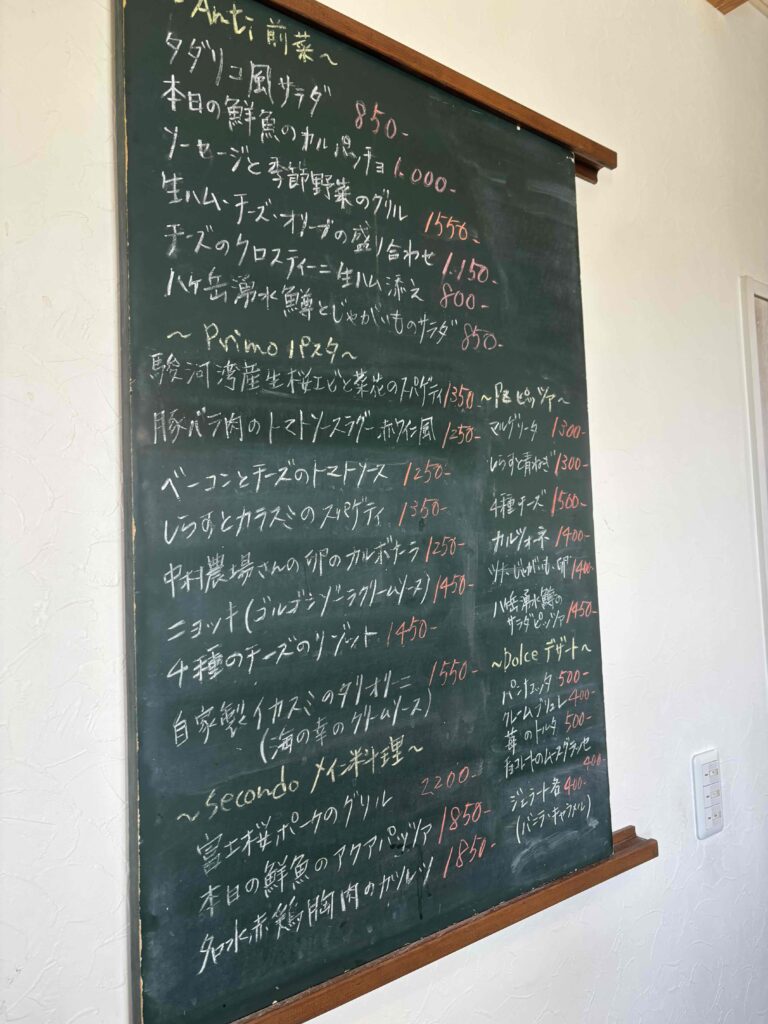 ~Anti 前菜~
タダリコ風サラダ 850-
本日の鮮魚のカルパッチョ 1.000-
ソーセージと季節野菜のグリル 1550-
生ハム・チーズ・オリーブの盛り合わせ 1.150-
チーズのクロスティーニ 生ハム添え 800-
八ヶ岳湧水鱒とじゃがいものサラダ 850-
~Primo パスタ~
駿河湾産生桜エビと菜花のスパゲティ 1350-
豚バラ肉のトマトソースラグー 赤ワイン風 1250-
ベーコンとチーズのトマトソース 1250-
しらすとカラスミのスパゲティ 1350-
中村農場さんの卵のカルボナーラ 1250-
ニョッキ(ゴルゴンゾーラクリームソース) 1450-
4種のチーズのリゾット 1450-
自家製イカスミのタリオリーニ 1550-
(海の幸のクリームソース)
~Secondo メイン料理~
富士桜ポークのグリル 2200-
本日の鮮魚のアクアパッツァ 1850-
名水赤鶏胸肉のカツレツ 1850-
~Pz ピッツァ~
マルゲリータ 1300-
しらすと青ねぎ 1300-
4種チーズ 1500-
カルツォーネ 1400-
ツナ・じゃがいも・卵 1400-
八ヶ岳湧水鱒の
サラダピッツァ 1450-
~Dolce デザート~
パンナコッタ 500-
クレームブリュレ 400-
苺のトルタ 500-
白コレートのムースグラッセ
400-
ジェラート各 400-
(バニラ・キャラメル)